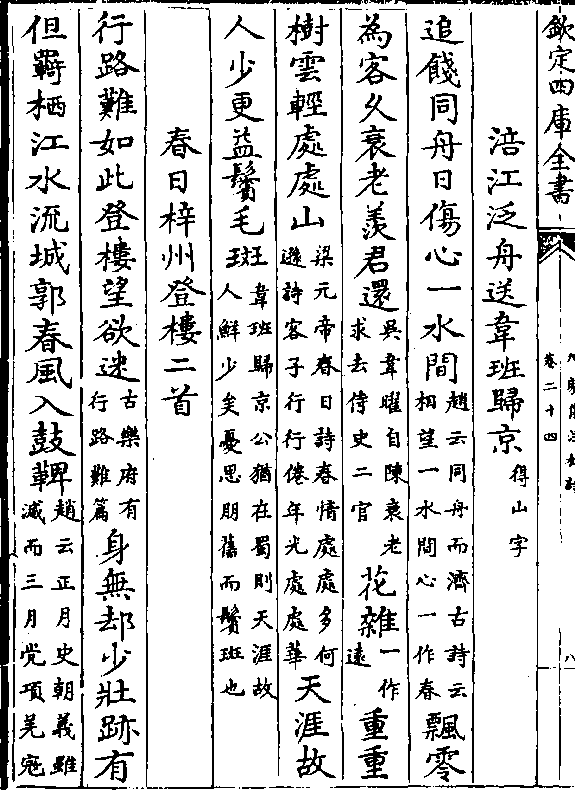 欽定四庫全書
卷二十四
八
涪江泛舟送韋班歸京得山字
追餞同舟日傷心一水間趙云同舟而濟古詩云相望一水間心一作春飄零
為客久衰老羡君還吳韋曜自陳衰老求去侍史二官花雜一作遠重重
樹雲輕處處山梁元帝春日詩春情處處多何遜詩客子行行倦年光處處華天涯故
人少更益鬢毛斑韋班歸京公猶在蜀則天涯故人鮮少矣憂思朋舊而鬢斑也
春日梓州登樓二首
行路難如此登樓望欲迷古樂府有行路難篇身無却少壯跡有
但羇栖江水流城郭春風入鼓鞞趙云正月史朝義雖滅而三月党項羌寇